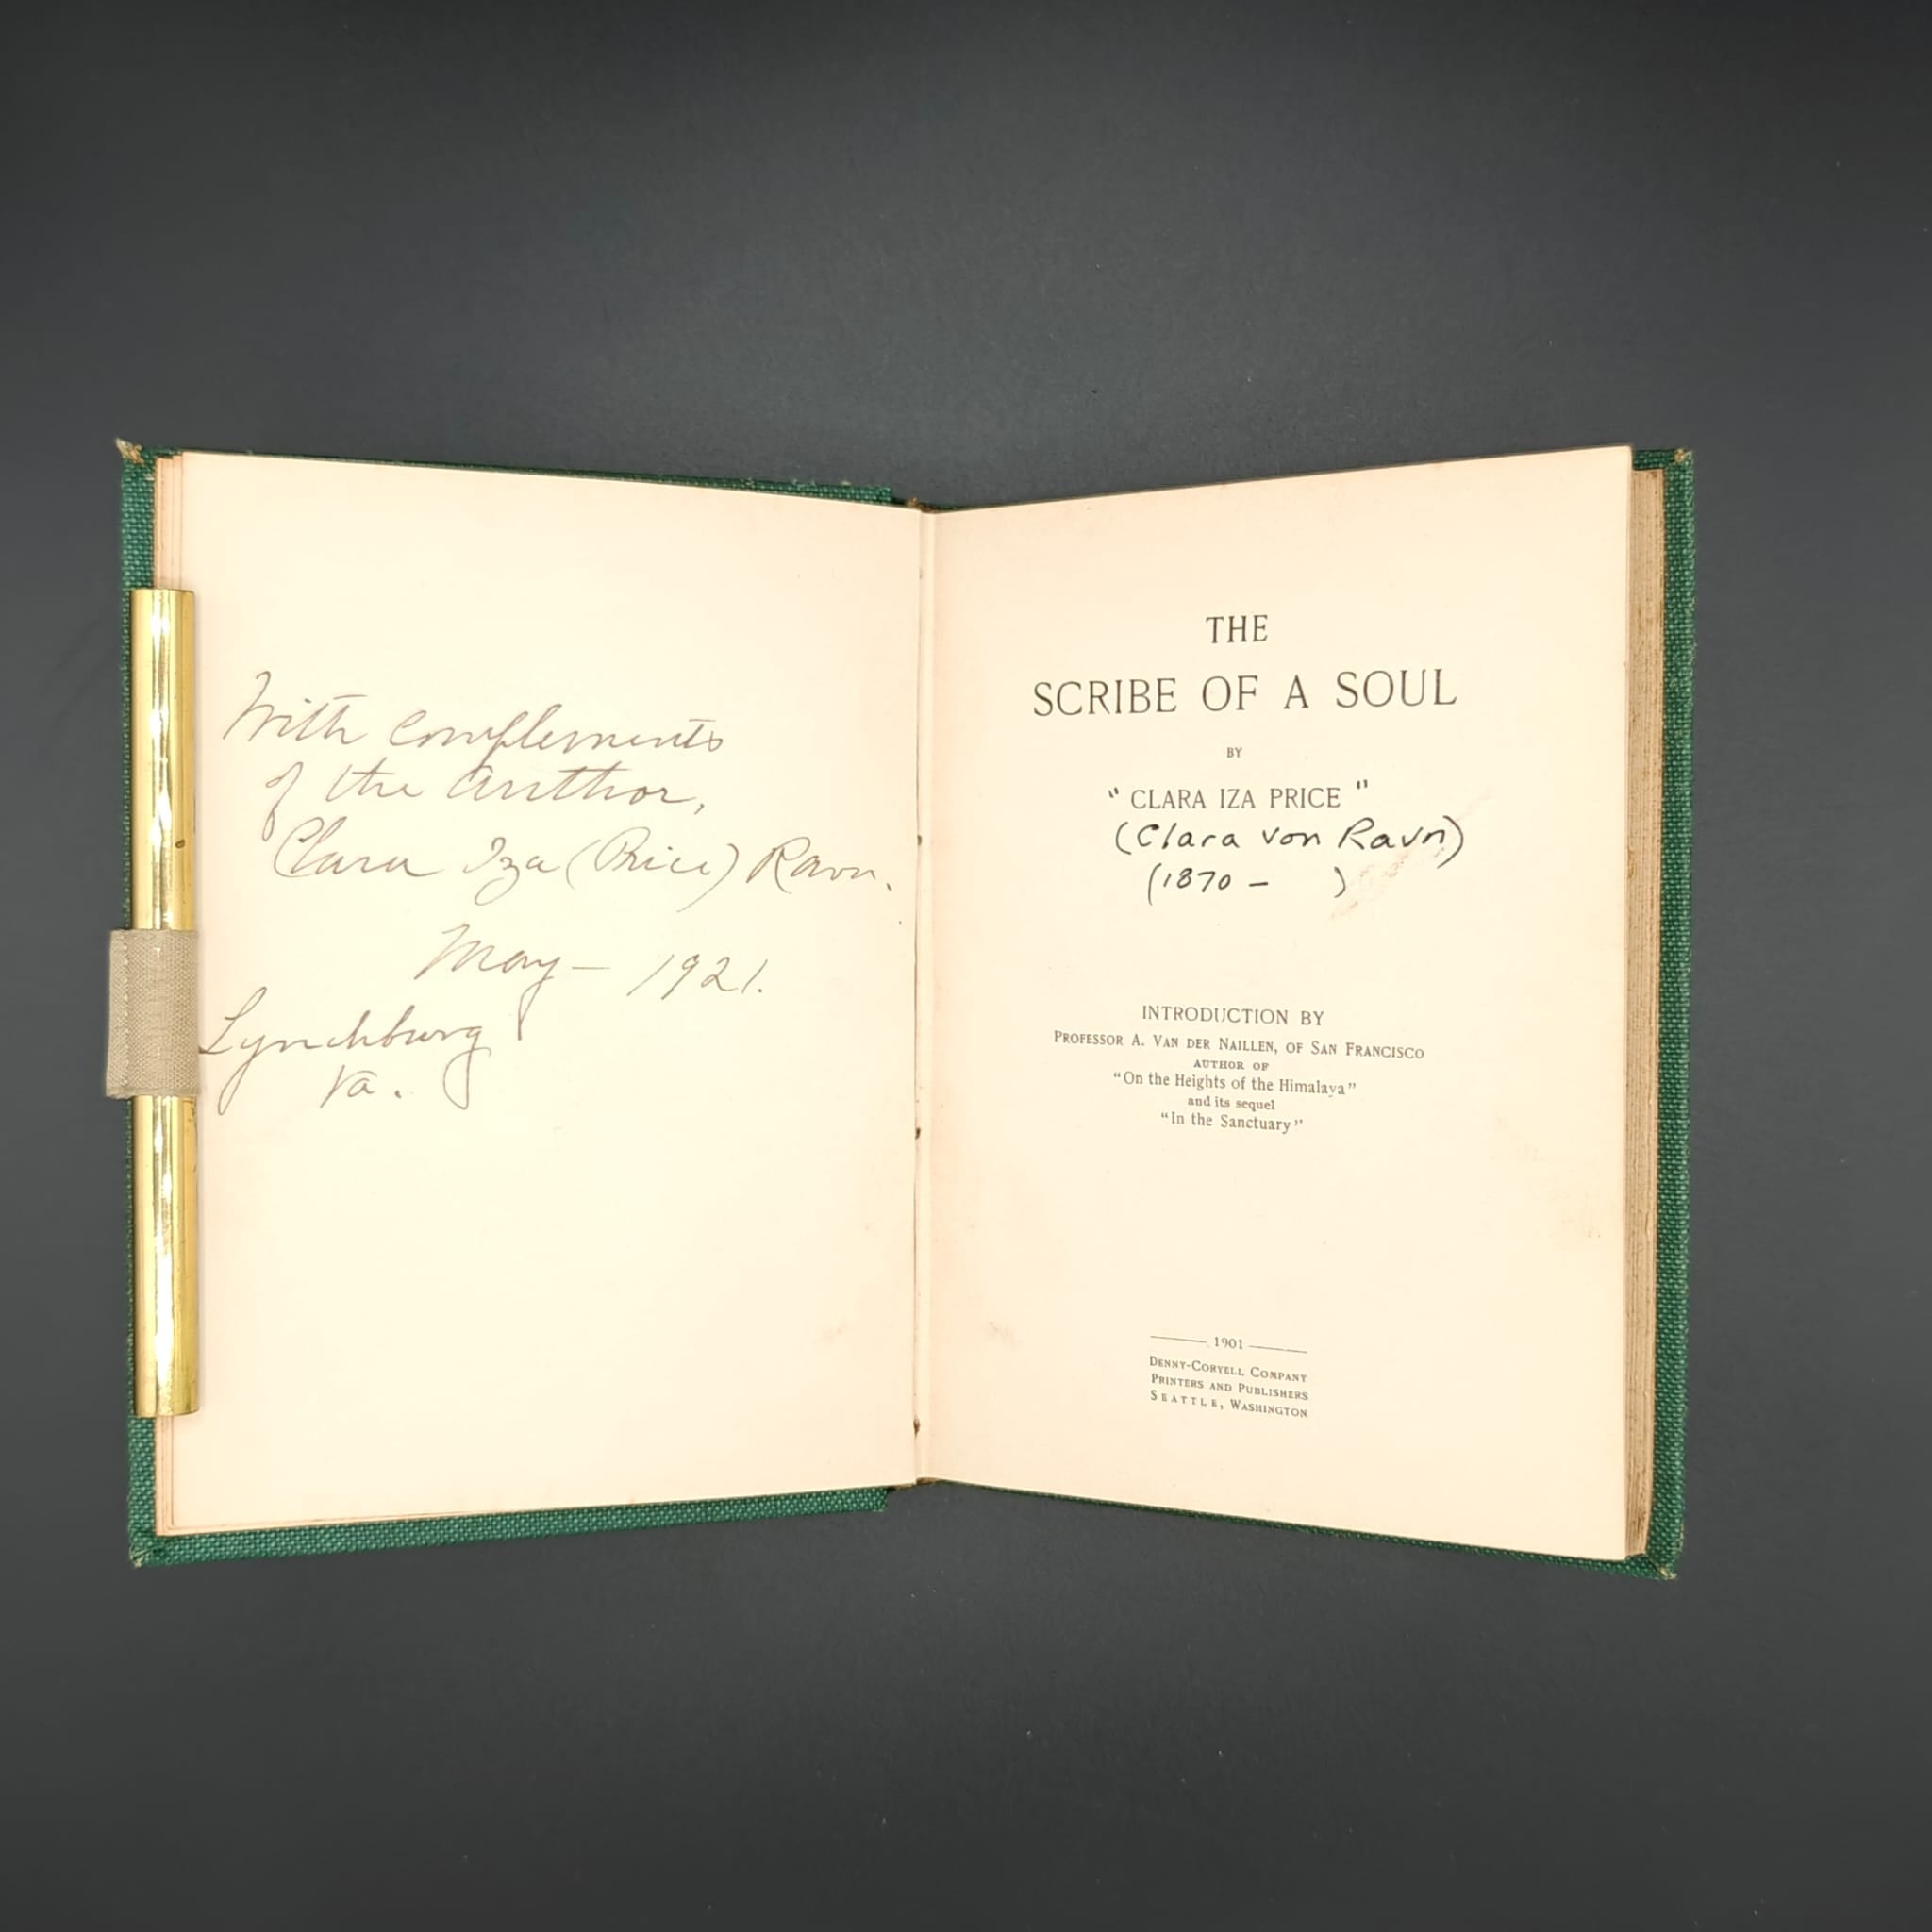 With complements
of the author,
Clara Iza (Price) Ravn.
May — 1921.
Lynchburg
Va.
THE
SCRIBE OF A SOUL
BY
" CLARA IZA PRICE "
(Clara von Ravn)
(1870 –     )
INTRODUCTION BY
PROFESSOR A. VAN DER NAILLEN, OF SAN FRANCISCO
AUTHOR OF
"On the Heights of the Himalaya"
and its sequel
"In the Sanctuary"
1901
DENNY-CORYELL COMPANY
PRINTERS AND PUBLISHERS
SEATTLE, WASHINGTON